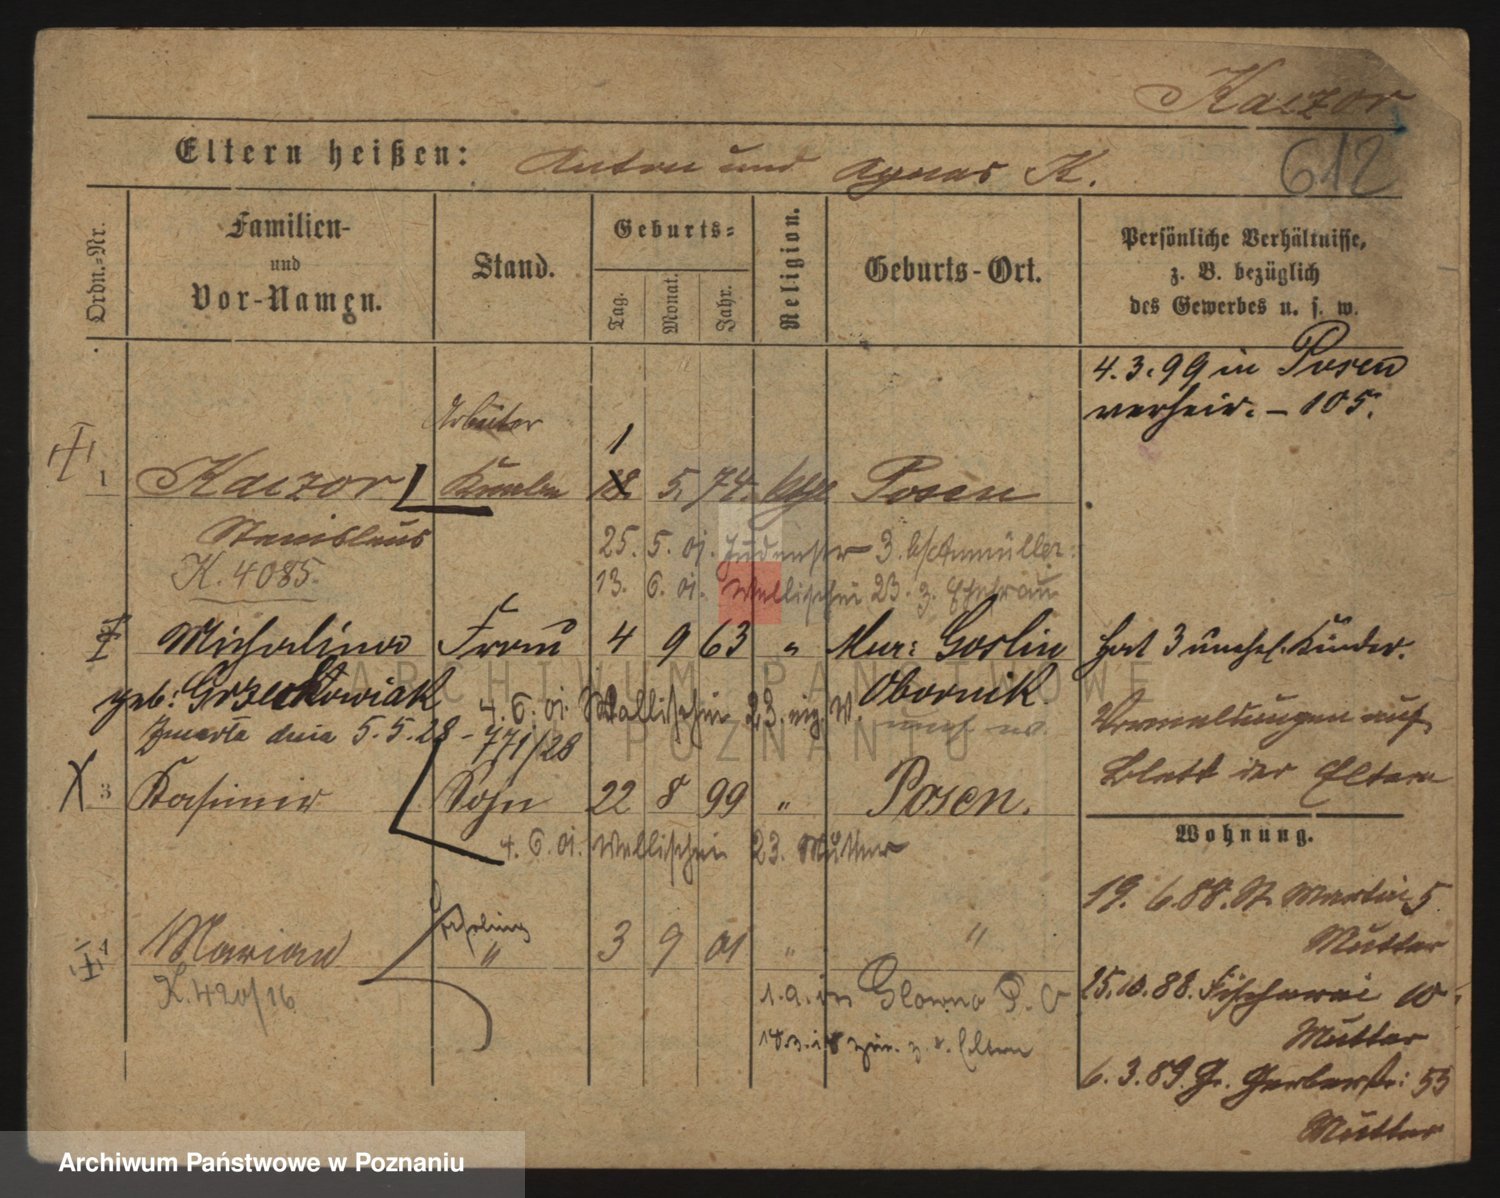 Kaczor
Eltern heißen: Anton und Agnes K.
612
Ordn.-Nr.
Familien- und Vor-Namen.
Stand.
Geburts-
Tag.
Monat.
Jahr.
Religion.
Geburts-Ort.
Persönliche Verhältnisse, z. B. bezüglich des Gewerbes u. s. w.
4. 3. 99 in Posen
verheir. – 105.
Arbeiter
1
1 Kaczor 18. 5. 74. kath Posen
Stanislaus
25. 5. 01.
K. 4085.
13. 6. 01. Wallischei 23. z. Ehefrau
Michalina Frau 4 9 63 " Mur: Goslin
hat 3 unehel. Kinder.
geb: Grzeskowiak 4. 6. 01. Wallischei 23. Obornik.
Zmarła dnia 5. 5. 28 – 771/28
Vermeldungen auf
Blatt der Eltern
3 Kasimir Sohn 22 8 99 " Posen.
4. 6. 01. Wallischei 23. Mutter
Wohnung.
19. 6. 88. St. Martin 5
Mutter
4 Marian " 3 9 01 " "
K. 420/16
1. 9. in Glowno P. O
z. d. Eltern
25. 10. 88. Fischerei 10
Mutter
6. 3. 89. Gr. Gerberstr: 53
Mutter
ARCHIWUM PAŃSTWOWE
W POZNANIU
Archiwum Państwowe w Poznaniu